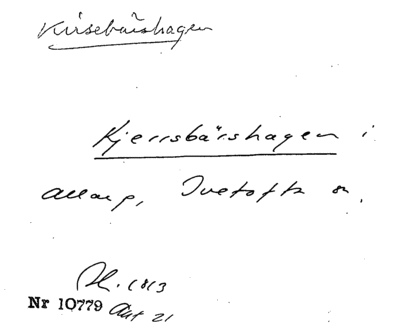 Kirsebärshagen
Kjerrsbärshagen i
Allarp, Ivetofta sn.
Sk. 1813
Nr 10779 Akt 21